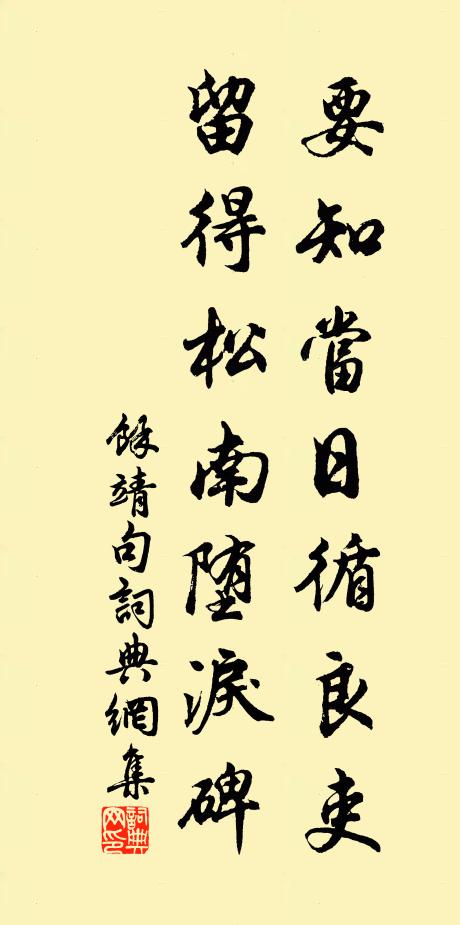 要知當日循良吏
留得松南堕淚碑
餘靖句詞典網集
詞典
网印